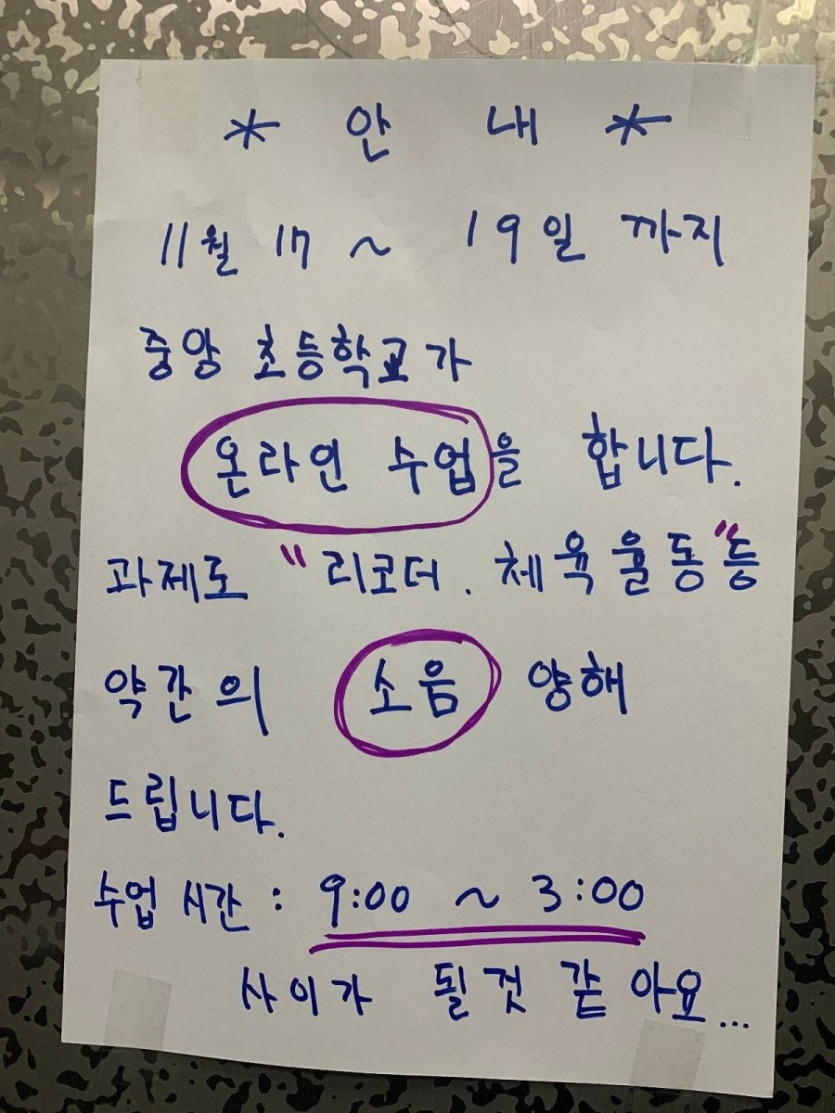 * 안 내 *
11월 17 ~ 19일 까지
중앙 초등학교가
온라인 수업을 합니다.
과제로 "리코더. 체육율동"등
약간의 소음 양해
드립니다.
수업 시간 : 9:00 ~ 3:00
사이가 될것 같아요...